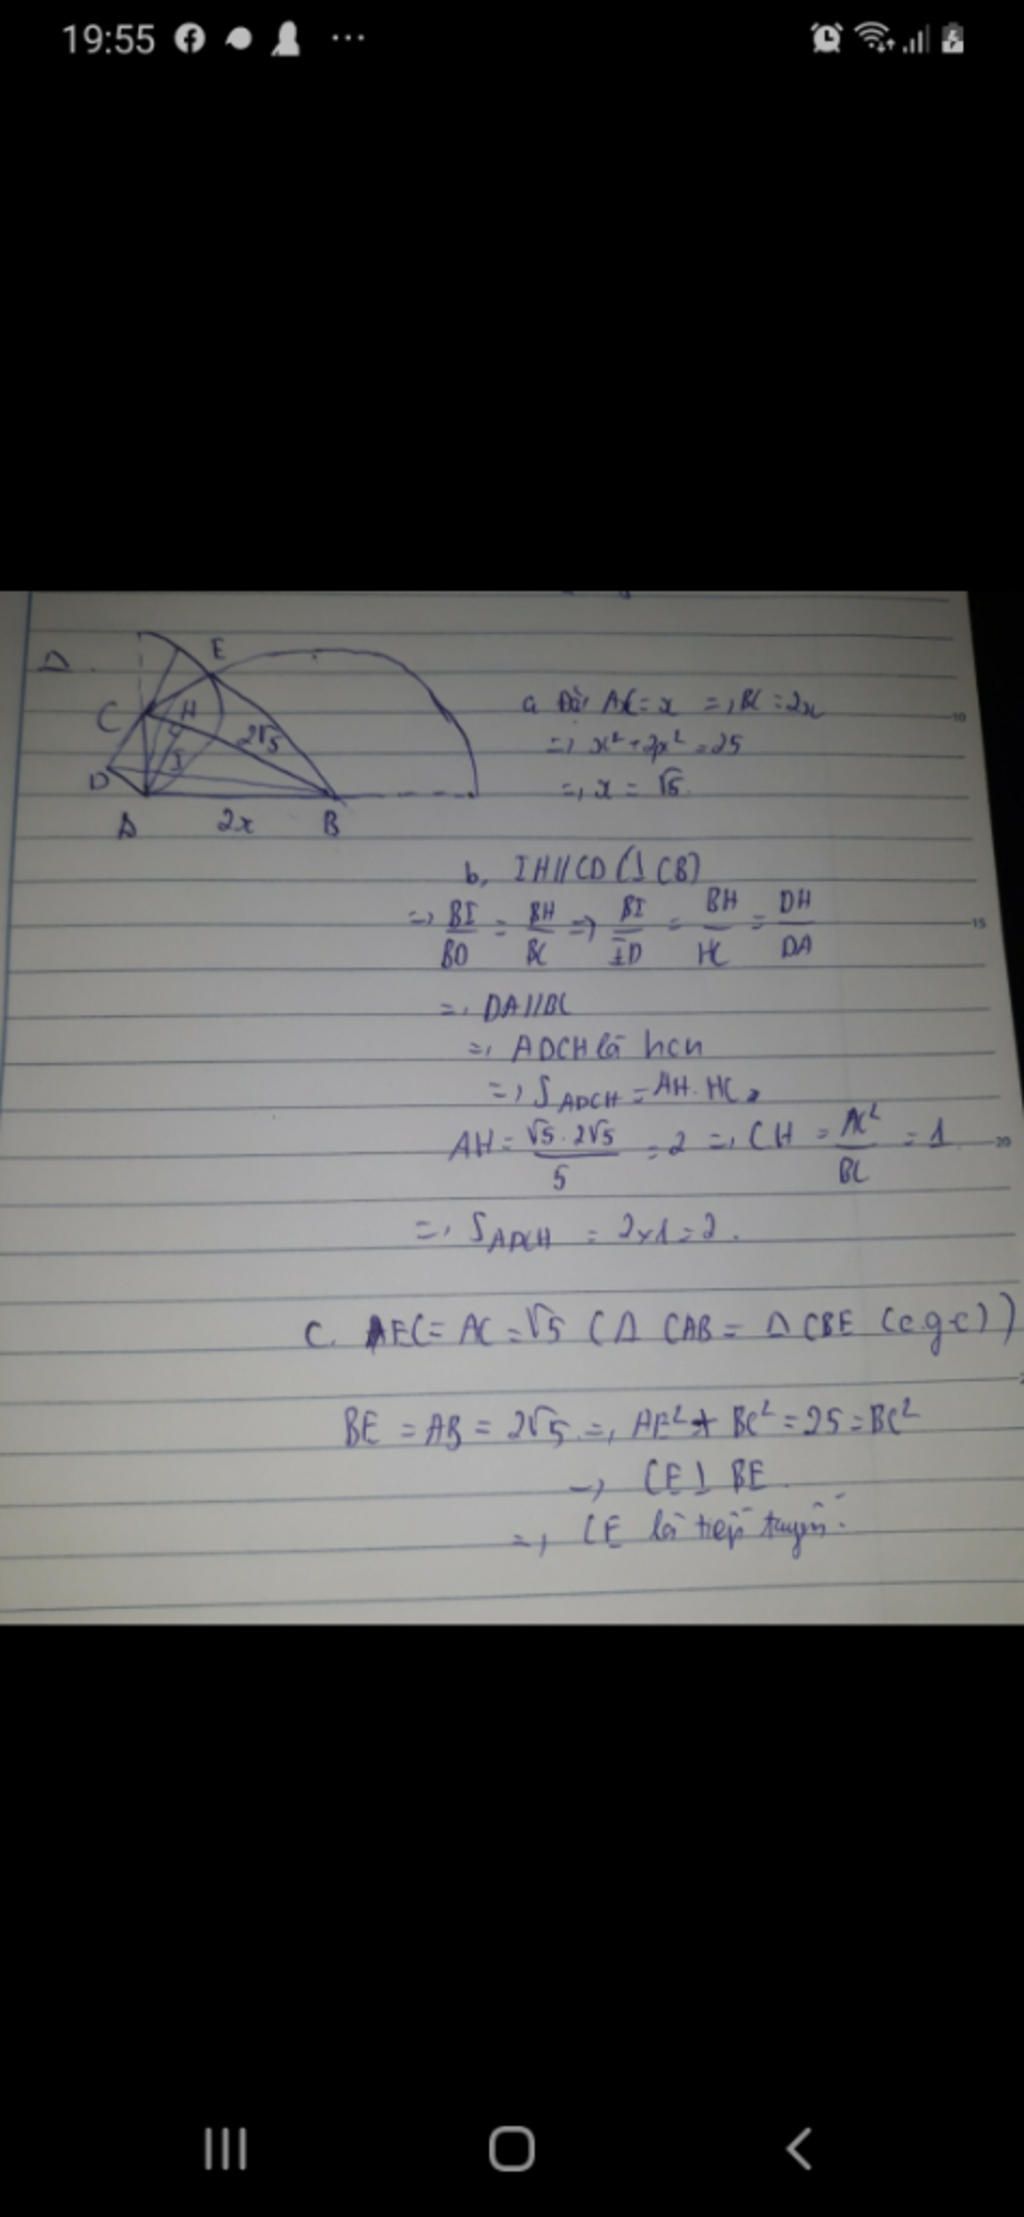 19:55
E
C
H
2√5
D
I
A
2x
B
a. Đặt AC = x => BC = 2x
=> x² + 2x² = 25
=> x = √5.
b, IH // CD (⊥ CB)
=> BI/BD = BH/BC => BI/ID = BH/HC = DH/DA
=> DA // BC
=> ADCH là hcn
=> S ADCH = AH. HC
AH = √5 . 2√5 / 5 = 2 => CH = AC²/BC = 1
=> S ADCH = 2 x 1 = 2.
C. EC = AC = √5 (Δ CAB = Δ CBE (c.g.c))
BE = AB = 2√5 => AE² + BC² = 25 = BC²
=> CE ⊥ BE
=> CE là tiếp tuyến.